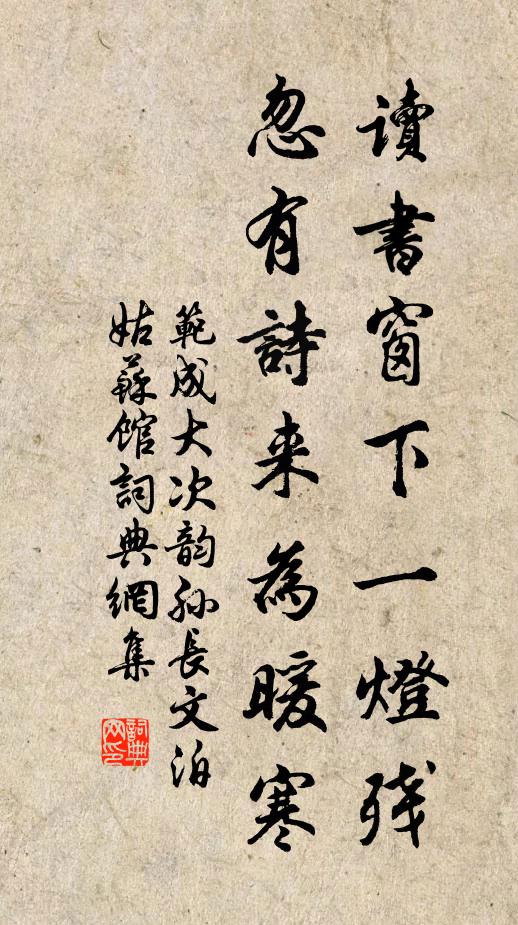 讀書窗下一燈残
忽有詩来為暖寒
範成大次韵孙長文泊
姑蘇館詞典網集
詞典
网印